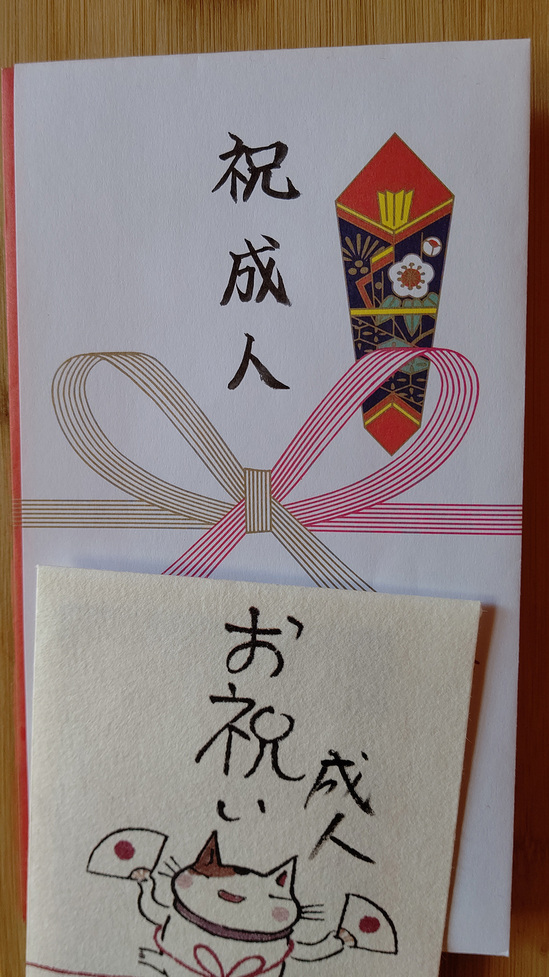 祝成人
お祝い
成人